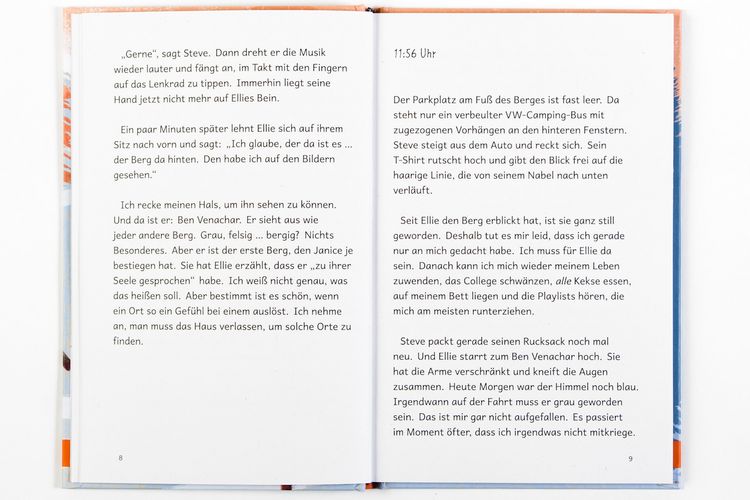 „Gerne“, sagt Steve. Dann dreht er die Musik
wieder lauter und fängt an, im Takt mit den Fingern
auf das Lenkrad zu tippen. Immerhin liegt seine
Hand jetzt nicht mehr auf Ellies Bein.
Ein paar Minuten später lehnt Ellie sich auf ihrem
Sitz nach vorn und sagt: „Ich glaube, der da ist es ...
der Berg da hinten. Den habe ich auf den Bildern
gesehen.“
Ich recke meinen Hals, um ihn sehen zu können.
Und da ist er: Ben Venachar. Er sieht aus wie
jeder andere Berg. Grau, felsig ... bergig? Nichts
Besonderes. Aber er ist der erste Berg, den Janice je
bestiegen hat. Sie hat Ellie erzählt, dass er „zu ihrer
Seele gesprochen“ habe. Ich weiß nicht genau, was
das heißen soll. Aber bestimmt ist es schön, wenn
ein Ort so ein Gefühl bei einem auslöst. Ich nehme
an, man muss das Haus verlassen, um solche Orte zu
finden.
8
11:56 Uhr
Der Parkplatz am Fuß des Berges ist fast leer. Da
steht nur ein verbeulter VW-Camping-Bus mit
zugezogenen Vorhängen an den hinteren Fenstern.
Steve steigt aus dem Auto und reckt sich. Sein
T-Shirt rutscht hoch und gibt den Blick frei auf die
haarige Linie, die von seinem Nabel nach unten
verläuft.
Seit Ellie den Berg erblickt hat, ist sie ganz still
geworden. Deshalb tut es mir leid, dass ich gerade
nur an mich gedacht habe. Ich muss für Ellie da
sein. Danach kann ich mich wieder meinem Leben
zuwenden, das College schwänzen, alle Kekse essen,
auf meinem Bett liegen und die Playlists hören, die
mich am meisten runterziehen.
Steve packt gerade seinen Rucksack noch mal
neu. Und Ellie starrt zum Ben Venachar hoch. Sie
hat die Arme verschränkt und kneift die Augen
zusammen. Heute Morgen war der Himmel noch blau.
Irgendwann auf der Fahrt muss er grau geworden
sein. Das ist mir gar nicht aufgefallen. Es passiert
im Moment öfter, dass ich irgendwas nicht mitkriege.
9